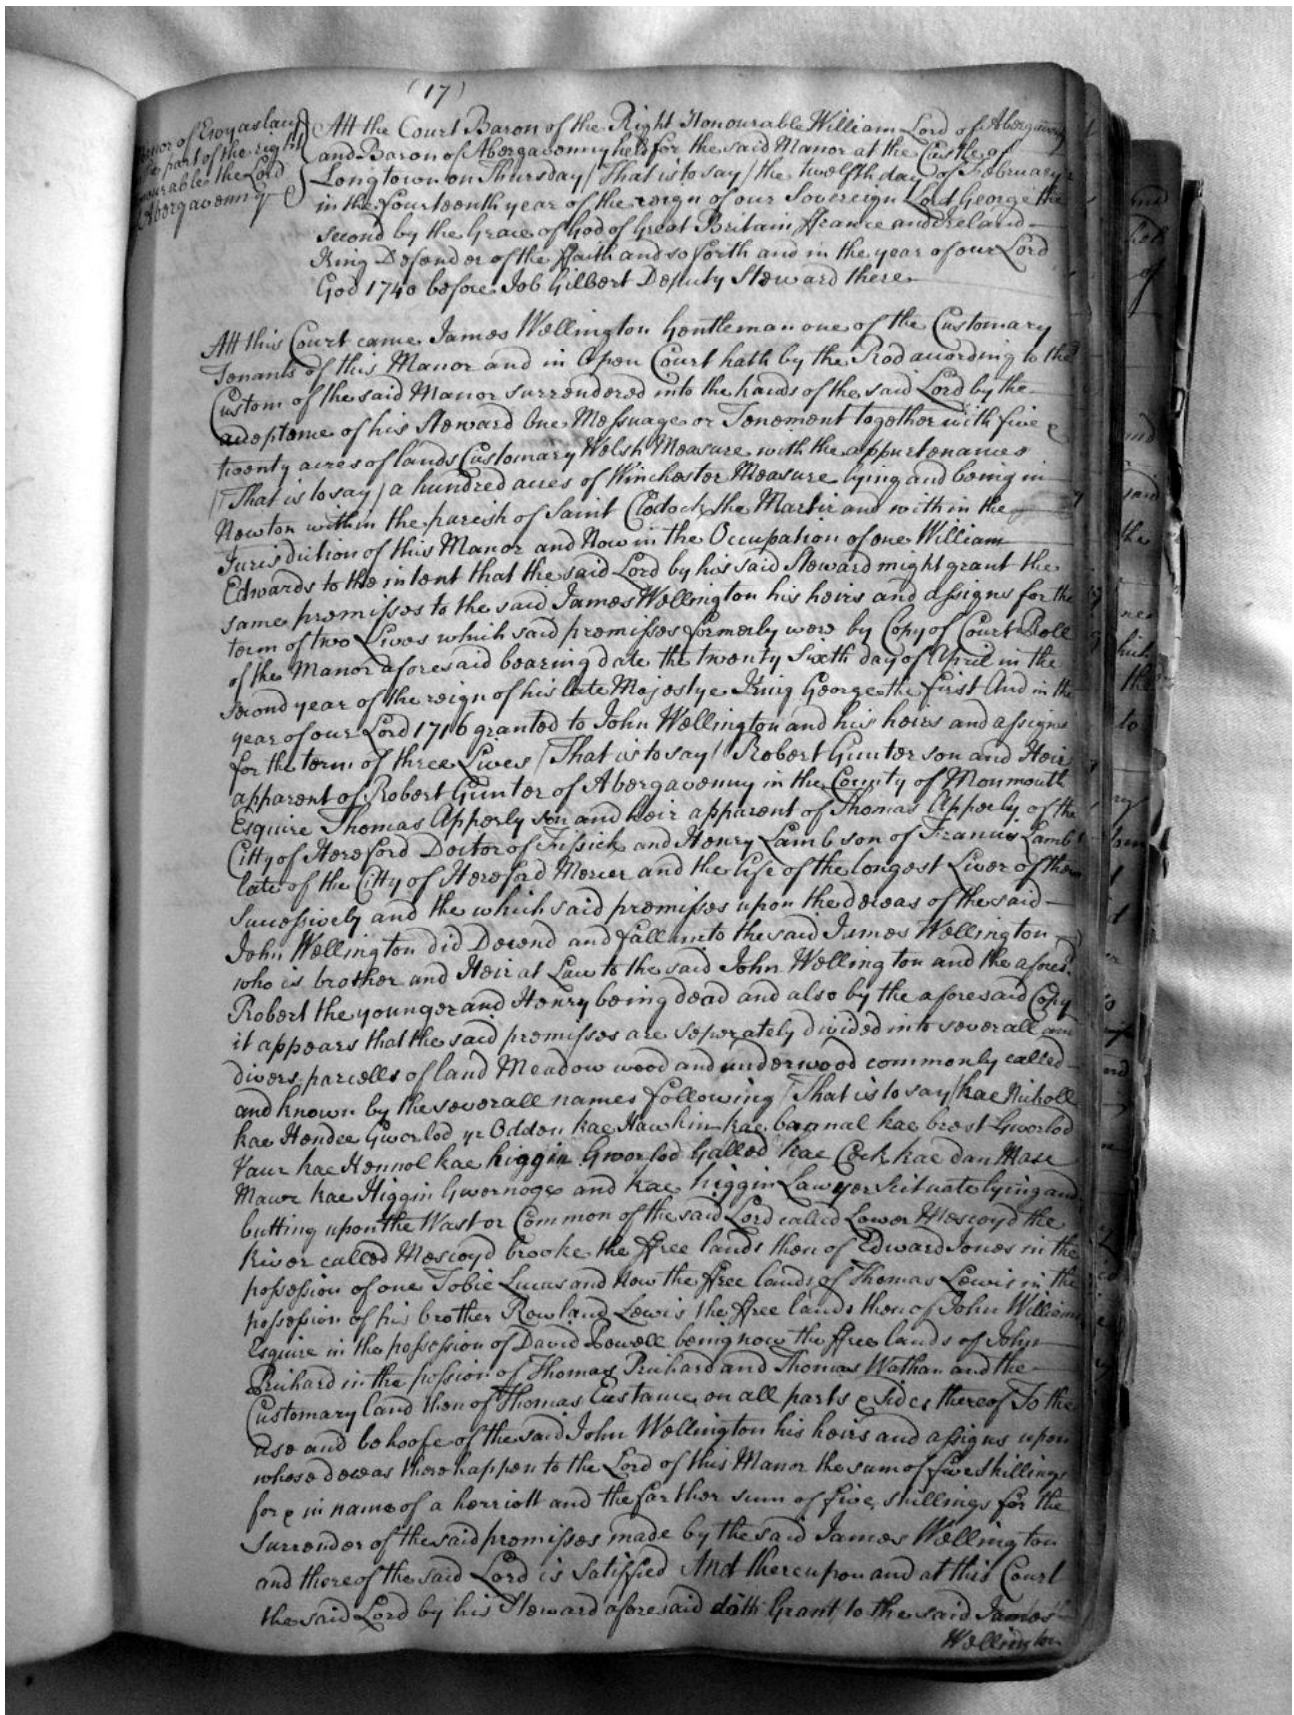 (17)
Manor of Ewyaslacy
a part of the right
Honourable the Lord
Abergavenny
Att the Court Baron of the Right Honourable William Lord of Abergavenny
and Baron of Abergavenny held for the said Manor at the Castle of
Longtown on Thursday / That is to say / the twelfth day of February
in the fourteenth year of the reign of our Sovereign Lord George the
second by the Grace of God of Great Britain ffrance and Ireland
King Defender of the ffaith and so forth and in the year of our Lord
God 1740 before Job Gilbert Deputy Steward there
Att this Court came James Wellington Gentleman one of the Customary
Tenants of this Manor and in Open Court hath by the Rod according to the
Custom of the said Manor surrendered into the hands of the said Lord by the
acceptance of his Steward One Messuage or Tenement together with five &
twenty acres of lands Customary Welsh Measure with the appurtenances
/ That is to say / a hundred acres of Winchester Measure lying and being in
Newton within the parish of Saint Clodock the Martir and within the
Jurisdiction of this Manor and Now in the Occupation of one William
Edwards to the intent that the said Lord by his said Steward might grant the
same premisses to the said James Wellington his heirs and assigns for the
term of two Lives which said premisses formerly were by Copy of Court Roll
of the Manor aforesaid bearing date the twenty Sixth day of April in the
second year of the reign of his late Majestye King George the first And in the
year of our Lord 1716 granted to John Wellington and his heirs and assigns
for the term of three Lives / That is to say / Robert Gunter son and Heir
apparent of Robert Gunter of Abergavenny in the County of Monmouth
Esquire Thomas Apperly son and heir apparent of Thomas Apperly of the
Citty of Hereford Doctor of Fissick and Henry Lamb son of Francis Lamb
late of the Citty of Hereford Mercer and the life of the longest Liver of them
Successively and the which said premisses upon the deceas of the said
John Wellington did Decend and fall unto the said James Wellington
who is brother and Heir at Law to the said John Wellington and the afores.d
Robert the younger and Henry being dead and also by the aforesaid Copy
it appears that the said premisses are seperately divided into severall and
divers parcells of land Meadow wood and underwood commonly called
and known by the severall names following / That is to say / kae Nicholl
kae Hendee Gworlod yr Odden kae Hawkin kae bannal kae brest Gworlod
Vaur kae Hennol kae higgin Gworlod Galled kae Cock kae dan Mase
Mawr kae Higgin Gwernoge and kae higgin Lawyer Scituate lying and
butting upon the Wast or Common of the said Lord called Lower Mescoyd the
River called Mescoyd brooke the ffree lands then of Edward Jones in the
possession of one Tobie Lucas and Now the ffree lands of Thomas Lewis in the
possession of his brother Rowland Lewis the ffree lands then of John Williams
Esquire in the possession of David Powell being now the ffree lands of John
Prichard in the possion of Thomas Prichard and Thomas Wathan and the
Customary land then of Thomas Eustance on all parts & Sides thereof To the
use and behoofe of the said John Wellington his heirs and assigns upon
whose deceas there happen to the Lord of this Manor the sum of five Shillings
for & in name of a herriott and the farther sum of five shillings for the
Surrender of the said premisses made by the said James Wellington
and thereof the said Lord is Satisfied And thereupon and at this Court
the said Lord by his Steward aforesaid doth Grant to the said James
Wellington